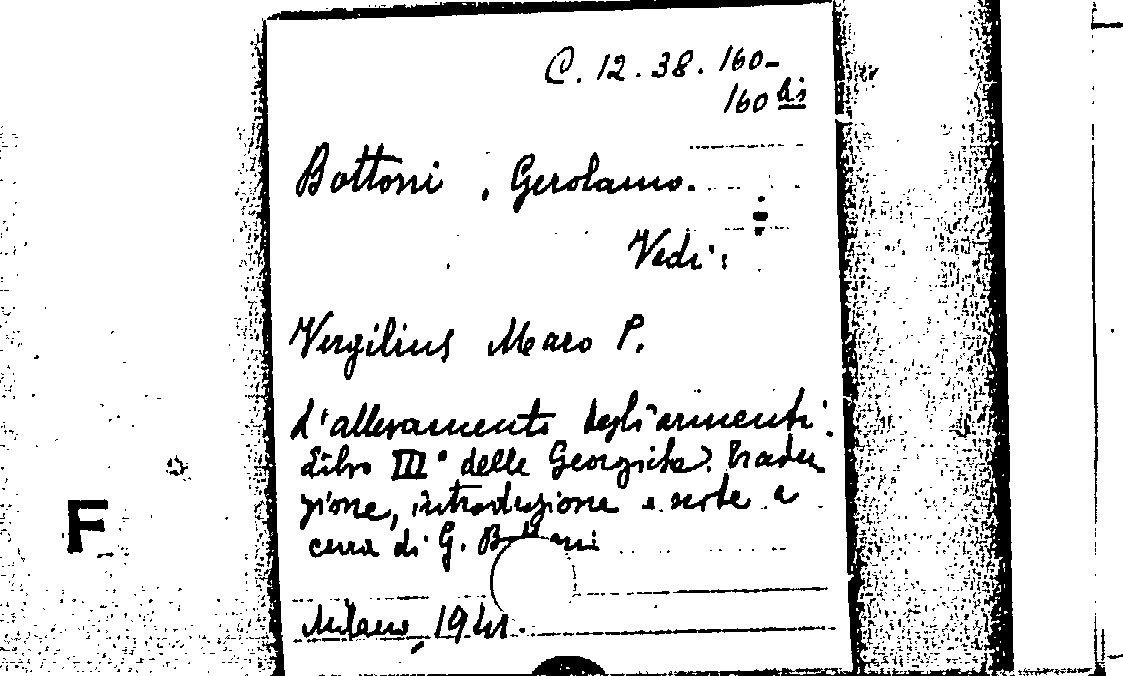 C. 12. 38. 160-
160 bis
Bottoni, Gerolamo.
Vedi:
Vergilius Maro P.
L'allevamento degli armenti.
Libro III° delle Georgiche. Tradu
zione, introduzione e note a
cura di G. Bottoni
Milano, 1941.
F